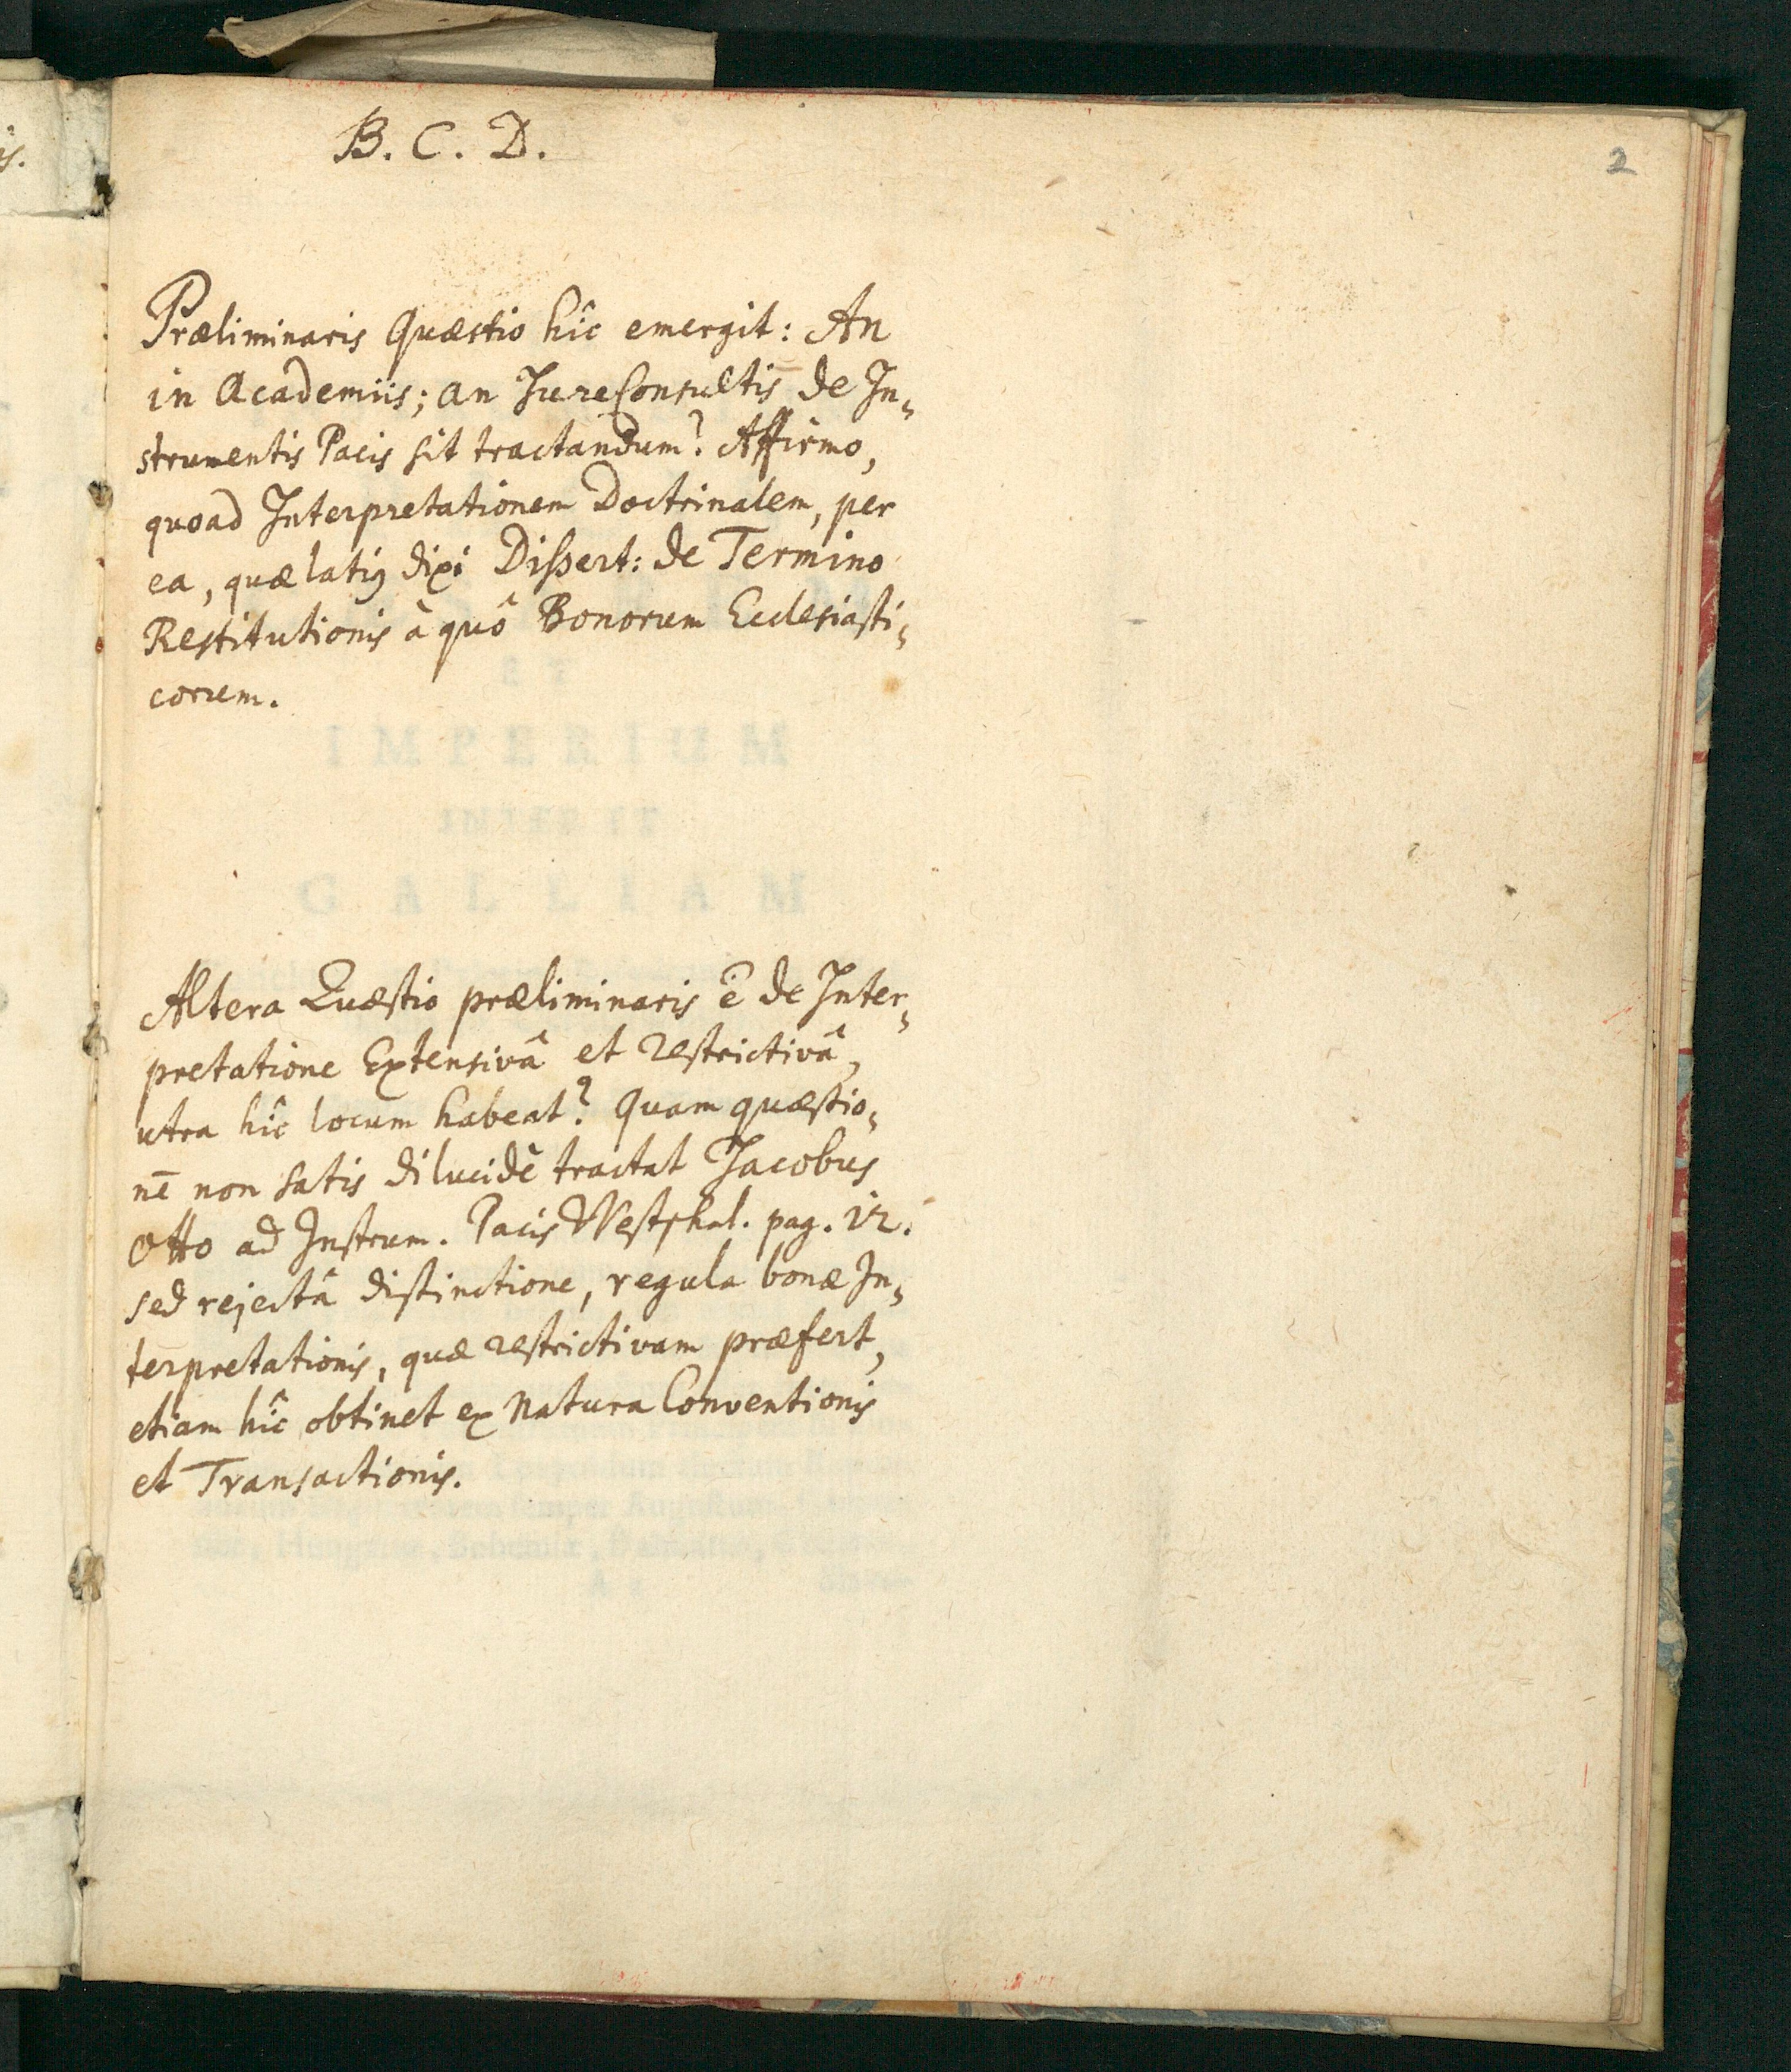 B. C. D.
2
Præliminaris Quæstio hîc emergit: An
in Academiis; an JureConsultis de In-
strumentis Pacis sit tractandum? Affirmo,
quoad Interpretationem Doctrinalem, per
ea, quæ latiꝰ dixi Dissert: de Termino
Restitutionis à quô Bonorum Ecclesiasti-
corum.
ET
IMPERIUM
INTER ET
GALLIAM
Altera Quæstio præliminaris ē de Inter-
pretatione Extensivâ et restrictivâ,
utra hîc locum habeat? Quam quæstio-
nē non satis dilucidè tractat Jacobus
Otto ad Instrum. Pacis Westphal. pag. 12.
sed rejectâ distinctione, regula bonæ In-
terpretationis, quæ restrictivam præfert,
etiam hîc obtinet ex Natura Conventionis
et Transactionis.
semper Augustum
Hungariæ, Bohemiæ, Dalmatiæ,